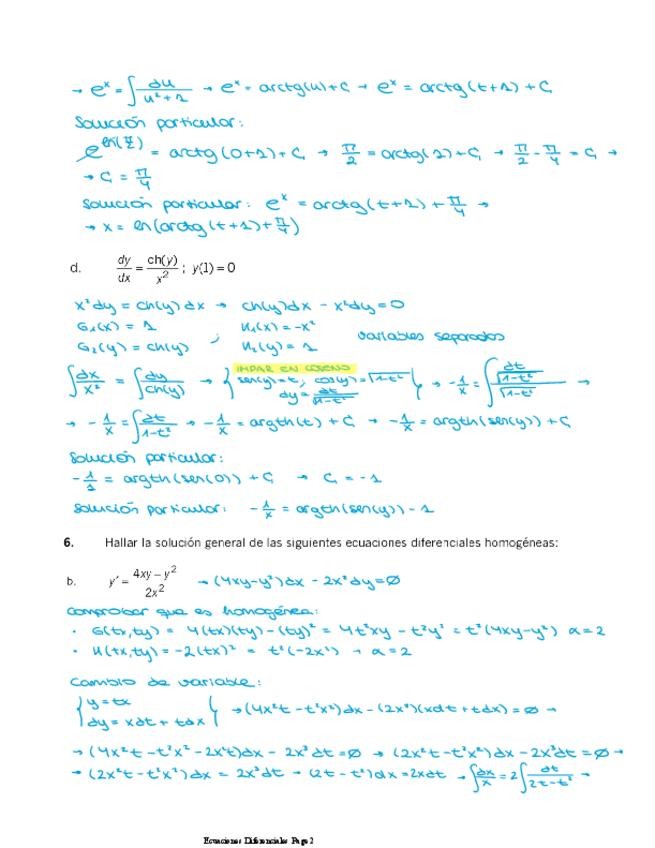 → eˣ = ∫ du/(u²+1) → eˣ = arctg(u)+C → eˣ = arctg(t+1)+C
Solución particular:
e^(ln(π/2)) = arctg(0+1)+C → π/2 = arctg(1)+C → π/2 - π/4 = C →
→ C = π/4
Solución particular: eˣ = arctg(t+1)+π/4 →
→ x = ln(arctg(t+1)+π/4)
d. dy/dx = ch(y)/x² ; y(1) = 0
x²dy = ch(y)dx → ch(y)dx - x²dy = 0
G₁(x) = 1 ; H₁(x) = -x² variables separados
G₂(y) = ch(y) H₂(y) = 1
IMPAR EN COSENO
∫ dx/x² = ∫ dy/ch(y) → { sen(y)=t; cos(y)=√(1-t²) dy = dt/√(1-t²) } → -1/x = ∫ (dt/√(1-t²))/√(1-t²) →
→ -1/x = ∫ dt/(1-t²) → -1/x = argth(t)+C → -1/x = argth(sen(y))+C
Solución particular:
-1/1 = argth(sen(0))+C → C = -1
Solución particular: -1/x = argth(sen(y)) - 1
6. Hallar la solución general de las siguientes ecuaciones diferenciales homogéneas:
b. y' = (4xy - y²)/2x² → (4xy-y²)dx - 2x²dy = 0
Comprobar que es homogénea:
• G(tx,ty) = 4(tx)(ty) - (ty)² = 4t²xy - t²y² = t²(4xy-y²) α = 2
• H(tx,ty) = -2(tx)² = t²(-2x²) → α = 2
Cambio de variable:
{ y = tx
dy = xdt + tdx } → (4x²t - t²x²)dx - (2x²)(xdt + tdx) = 0 →
→ (4x²t - t²x² - 2x²t)dx - 2x³dt = 0 → (2x²t - t²x²)dx - 2x³dt = 0 →
→ (2x²t - t²x²)dx = 2x³dt → (2t - t²)dx = 2xdt → ∫ dx/x = 2∫ dt/(2t-t²) →
Ecuaciones Diferenciales Page 2